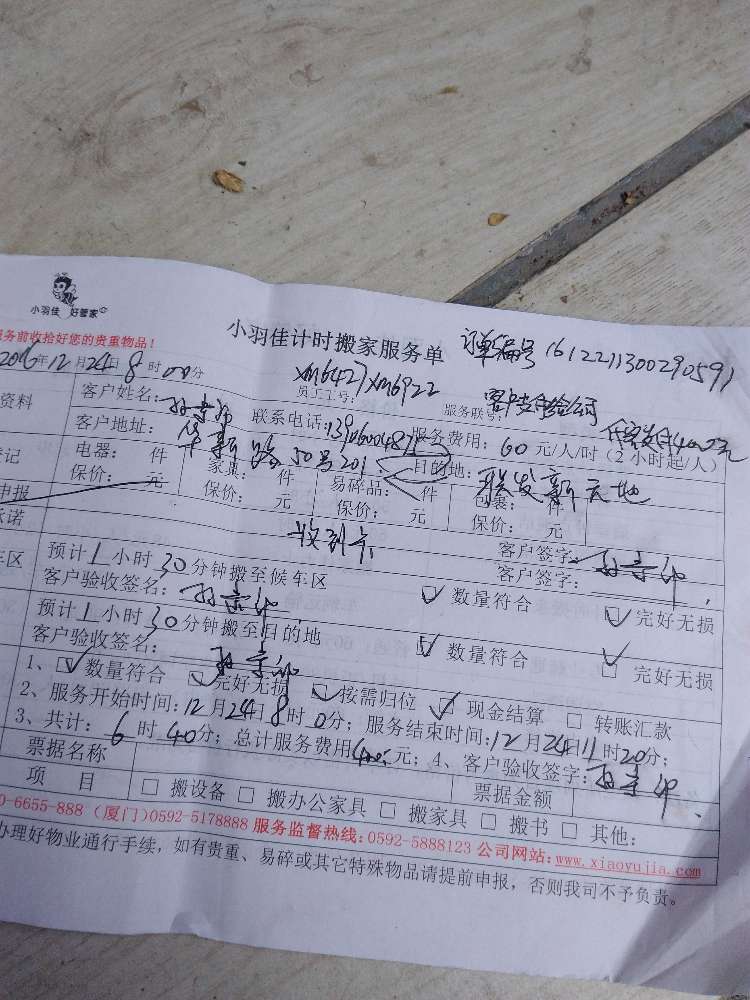 小羽佳 好管家
小羽佳计时搬家服务单
订单编号 1612211300290591
服务前收拾好您的贵重物品!
2016年12月24日8时00分
员工工号: XM6427 XM6922
服务联号:
客户支付给公司
资料
客户姓名:
联系电话:
服务费用: 60 元/人/时(2小时起/人)
客户地址: 华新路50号201
目的地: 联发新天地
电器: 件 家具: 件 易碎品: 件 包裹: 件
保价: 元 保价: 元 保价: 元 保价: 元
申报
收到卡
客户签字:
承诺
客户签字:
车区
预计1小时30分钟搬至候车区
☑ 数量符合 ☑ 完好无损
客户验收签名:
预计1小时30分钟搬至目的地
☑ 数量符合 ☑ 完好无损
客户验收签名:
1、☑ 数量符合 ☑ 完好无损 ☑ 按需归位 ☑ 现金结算 □ 转账汇款
2、服务开始时间:12月24日8时0分;服务结束时间:12月24日11时20分;
3、共计: 6时40分;总计服务费用400元;4、客户验收签字:
票据名称 票据金额
项 目 □ 搬设备 □ 搬办公家具 □ 搬家具 □ 搬书 □ 其他:
0-6655-888 (厦门)0592-5178888 服务监督热线:0592-5888123 公司网站:www.xiaoyujia.com
办理好物业通行手续,如有贵重、易碎或其它特殊物品请提前申报,否则我司不予负责。